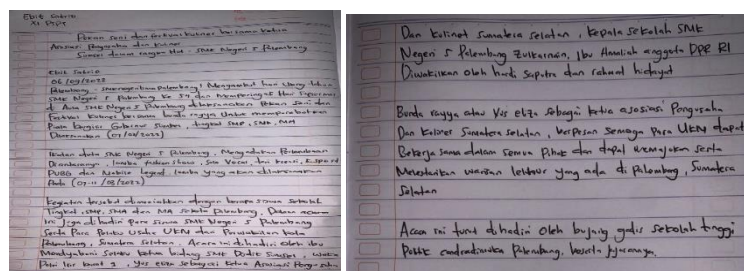 Ebit Sabrin
XI PSPS
Pekan seni dan festival kuliner bersama ketua
Asosiasi Pengusaha dan kuliner
Sumsel dalam rangka HUT - SMK Negeri 5 Palembang
Ebit Sabrin
06/09/2022
Palembang, Menyambut hari ulang tahun
SMK Negeri 5 Palembang ke 57 dan Memperingati Hari
di Aula SMK Negeri 5 Palembang dilaksanakan Pekan seni dan
Festival kuliner bersama bunda rayya untuk memperebutkan
Piala bergilir Gubernur Sumsel, tingkat SMP, SMK, MA
(07/09/2022)
SMK Negeri 5 Palembang, Mengadakan Perlombaan
Diantaranya, lomba fashion show, Solo Vocal, tari kreasi,
PUBG dan Mobile Legend, lomba yang akan dilaksanakan
Pada (07-11/09/2022)
Kegiatan tersebut dimeriahkan dengan berapa siswa sekolah
Tingkat, SMP, SMA dan MA sekota Palembang, Dalam acara
Ini juga dihadiri para siswa SMK Negeri 5 Palembang
Serta Para Pelaku Usaha UKM dan Perwakilan kota
Palembang, Sumatera Selatan, Acara ini dihadiri oleh ibu
Mondyaboni Selaku ketua bidang SMK Dodit Sumsel, Waka
1, Yus eliza sebagai ketua Asosiasi Pengusaha
Dan Kuliner Sumatera Selatan, Kepala Sekolah SMK
Negeri 5 Palembang Zulkarnain, Ibu Amaliah anggota DPR RI
Diwakilkan oleh hardi saputra dan rahmat hidayat
Bunda rayya atau Yus eliza sebagai ketua asosiasi Pengusaha
Dan Kuliner Sumatera Selatan, berpesan Semoga Para UKM dapat
Bekerja sama dalam Semua Pihak dan dapat memajukan serta
Melestarikan warisan leluhur yang ada di Palembang, Sumatera
Selatan
Acara ini turut dihadiri oleh bujang gadis sekolah tinggi
Politik candradimuka Palembang, beserta jajarannya.